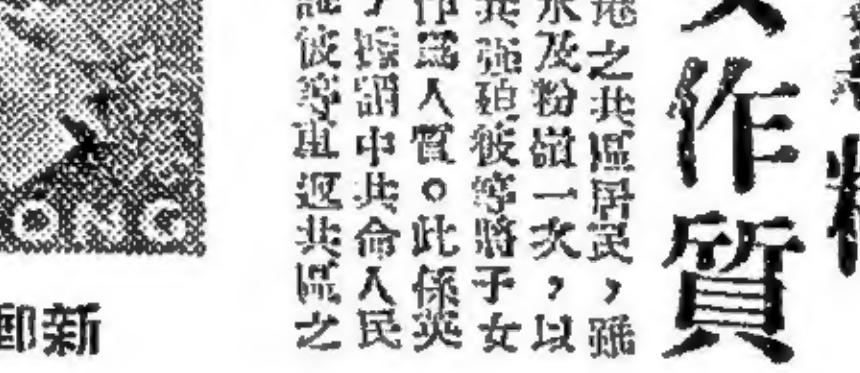 作質
之共區居民，雖
水及粉嶺一次，以
共強迫彼等將子女
作爲人質。此係英
謂中共命人民
彼等重返共區之
ONG
郵新